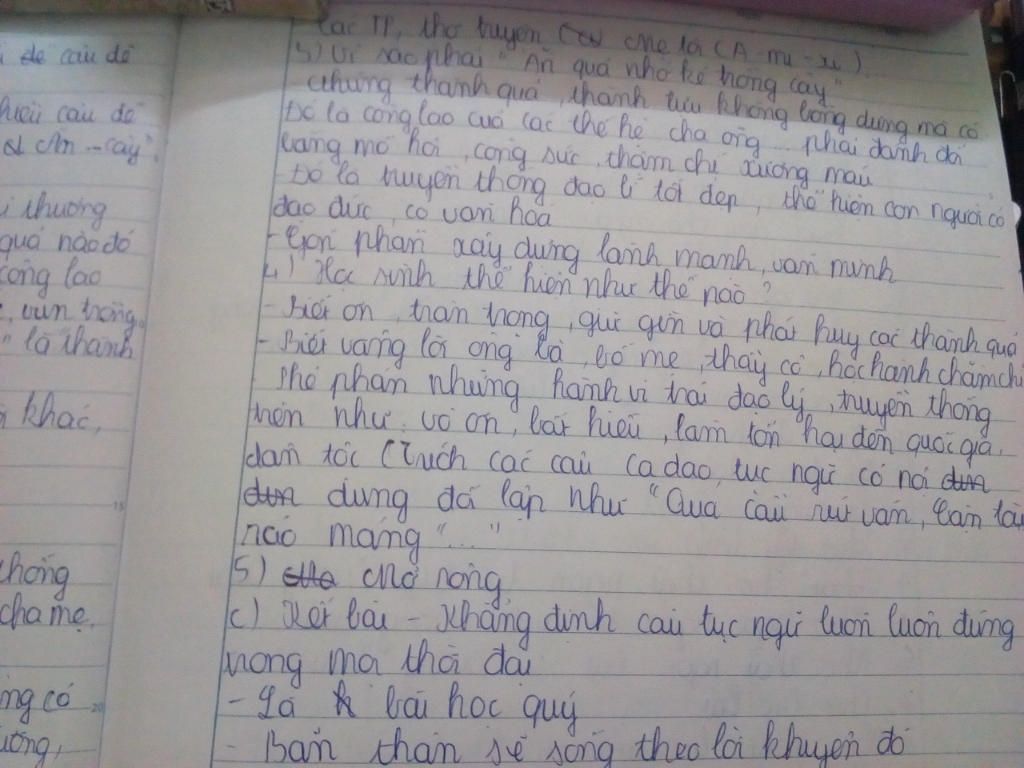 Các TP, thơ truyện Của Mẹ tôi (A-mi-xi)
3) Vì sao phải "Ăn quả nhớ kẻ trồng cây"
những thành quả, thành tựu không bỗng dưng mà có
Đó là công lao của các thế hệ cha ông phải đánh đổi
bằng mồ hôi, công sức, thậm chí xương máu
- Đó là truyền thống đạo lí tốt đẹp, thể hiện con người có
đạo đức, có văn hóa
- Góp phần xây dựng lành mạnh, văn minh
4) Học sinh thể hiện như thế nào?
- Biết ơn, trân trọng, giữ gìn và phát huy các thành quả
- Biết vâng lời ông bà, bố mẹ, thầy cô, học hành chăm chỉ
- Phê phán những hành vi trái đạo lý, truyền thống
trên như: vô ơn, bất hiếu, làm tổn hại đến quốc gia,
dân tộc (Trích các câu ca dao, tục ngữ có nội
dung đối lập như "Qua cầu rút ván, Cạn tàu
ráo máng "..."
5) Mở rộng
c) Kết bài - Khẳng định câu tục ngữ luôn luôn đúng
trong mọi thời đại
- Là bài học quý
- Bản thân sẽ sống theo lời khuyên đó
câu đó
hiểu câu đó
Ăn - cây"
thương
quả nào đó
công lao
vun trồng
" là thành
khác,
thống
cha mẹ.
có